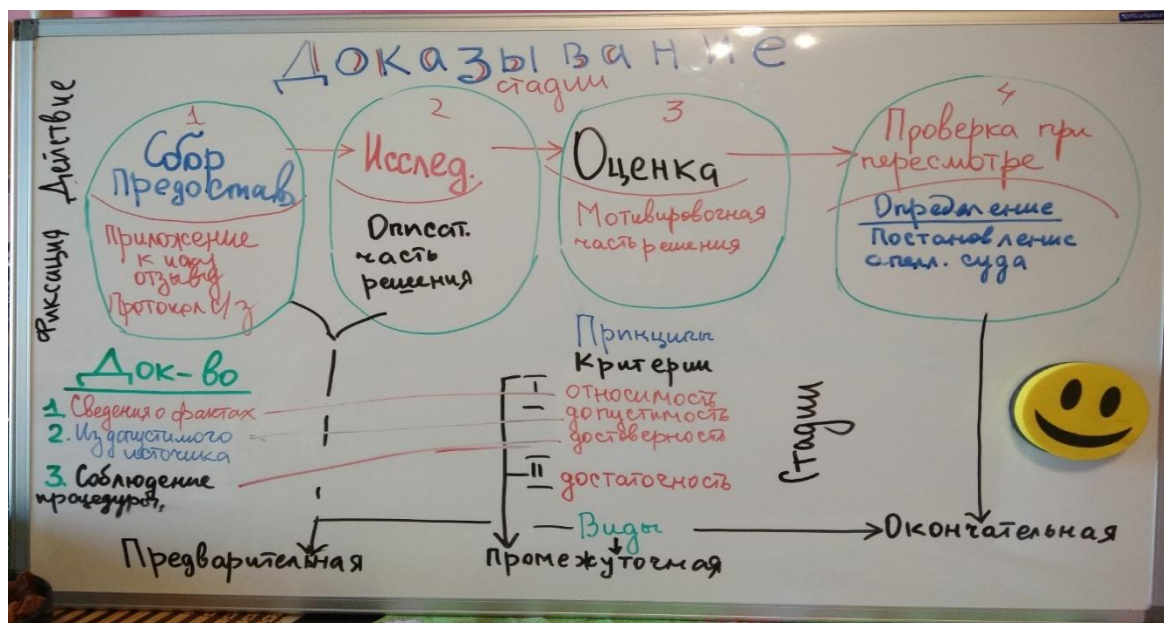 Доказывание
стадии
Действие
Фиксация
1
Сбор
Предостав.
Приложение
к иску
отзыву
Протокол с/з
2
Исслед.
Описат.
часть
решения
3
Оценка
Мотивировочная
часть решения
4
Проверка при
пересмотре
Определение
Постановление
апелл. суда
Док-во
1 Сведения о фактах
2. Из допустимого
источника
3. Соблюдение
процедуры
Принципы
Критерии
I
относимость
допустимость
достоверность
II
достаточность
Стадии
Виды
Предварительная
Промежуточная
Окончательная